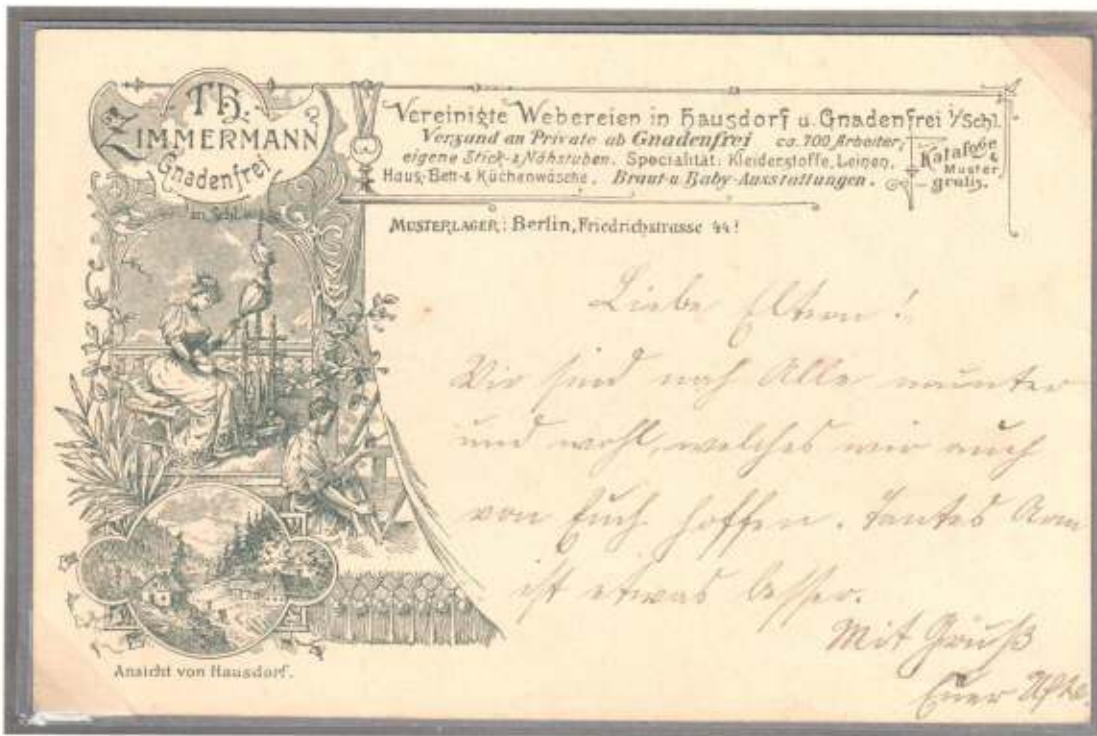 Th.
Zimmermann
Gnadenfrei
in Schlesien
Vereinigte Webereien in Hausdorf u. Gnadenfrei i/Schl.
Versand an Private ab Gnadenfrei ca. 700 Arbeiter,
eigene Stick- & Nähstuben. Specialität: Kleiderstoffe, Leinen,
Haus-, Bett- & Küchenwäsche. Braut- u. Baby-Ausstattungen.
Kataloge
&
Muster
gratis.
Musterlager: Berlin, Friedrichstrasse 44!
Liebe Eltern!
Wir sind noch Alle munter
und wohl, welches wir auch
von Euch hoffen. Tantes Arm
ist etwas besser.
Mit Gruß
Euer
Ansicht von Hausdorf.